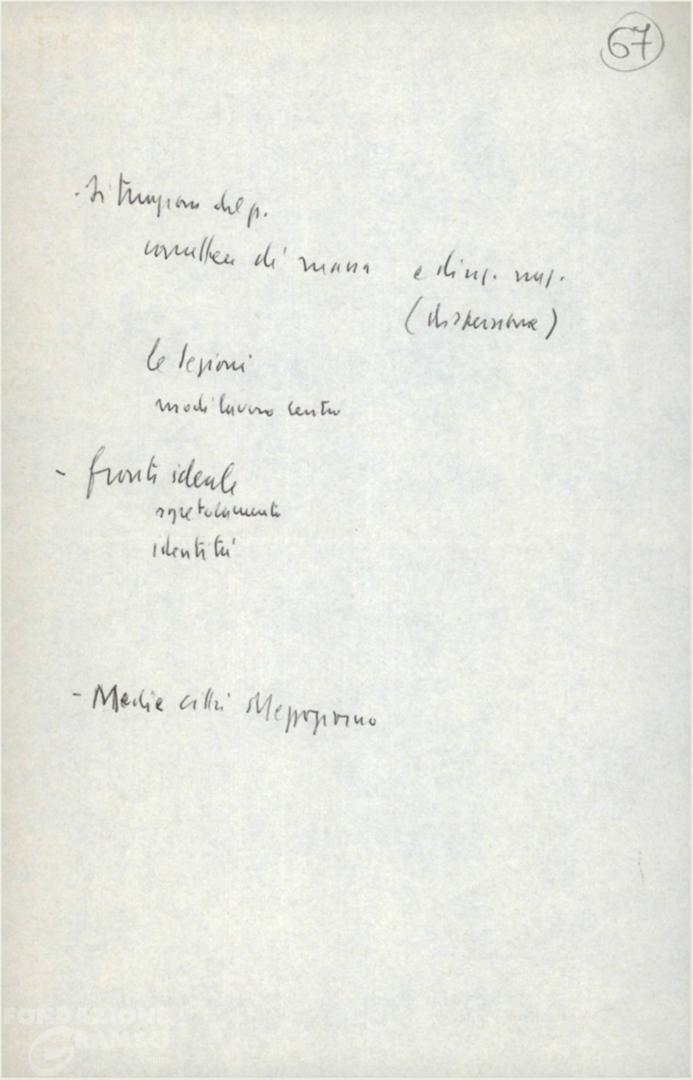 67
- Situazione del p.
carattere di massa e
(dispersione)
le sezioni
modi lavoro centro
- fronte ideale
sgretolamento
identità
- Medie città Mezzogiorno
FONDAZIONE
GRAMSCI